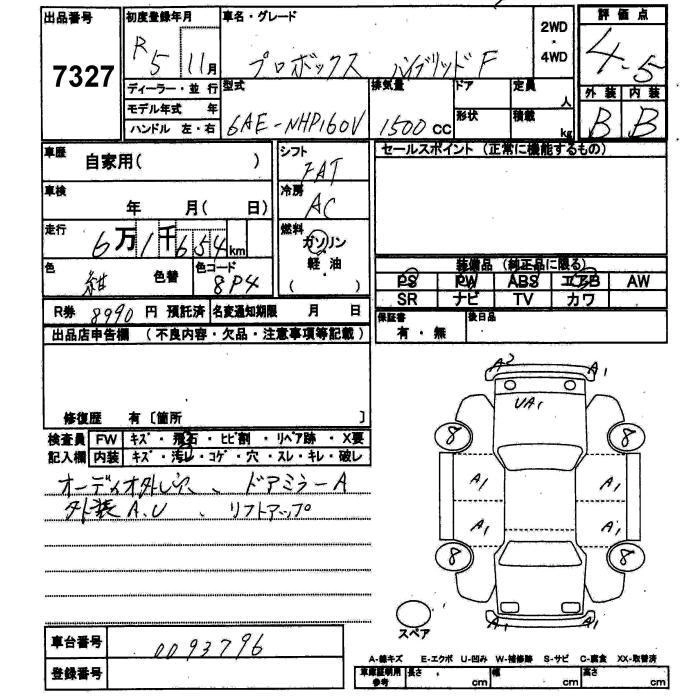 出品番号 7327
初度登録年月 R5 11月
車名・グレード プロボックス ハイブリッド F
2WD・4WD
評価点 4.5
外装 B 内装 B
ディーラー・並行
モデル年式 年
ハンドル 左・右
型式 6AE-NHP160V
排気量 1500cc
ドア 形状
定員 人
積載 kg
車歴 自家用( )
シフト FAT
セールスポイント(正常に機能するもの)
車検 年 月( 日)
冷房 AC
走行 6万1千654km
燃料 ガソリン 軽・油 ( )
色 紺 色替
色コード 8P4
装備品(純正品に限る)
PS PW ABS エアB AW
SR ナビ TV カワ
R券 8990円 預託済 名変通知期限 月 日
保証書 有・無
後日品
出品店申告欄 (不良内容・欠品・注意事項等記載)
修復歴 有〔箇所 〕
検査員記入欄
FW キズ・飛石・ヒビ割・リペア跡・X要
内装 キズ・汚レ・コゲ・穴・スレ・キレ・破レ
オーディオ外し穴、ドアミラーA
外装A.U、リフトアップ
A2 A1
UA1
8 8
A1 A1
A1 A1
8 8
A1 A1
スペア
車台番号 0093796
登録番号
A-線キズ E-エクボ U-凹み W-補修跡 S-サビ C-腐食 XX-取替済
車庫証明用参考 長さ cm 幅 cm 高さ cm